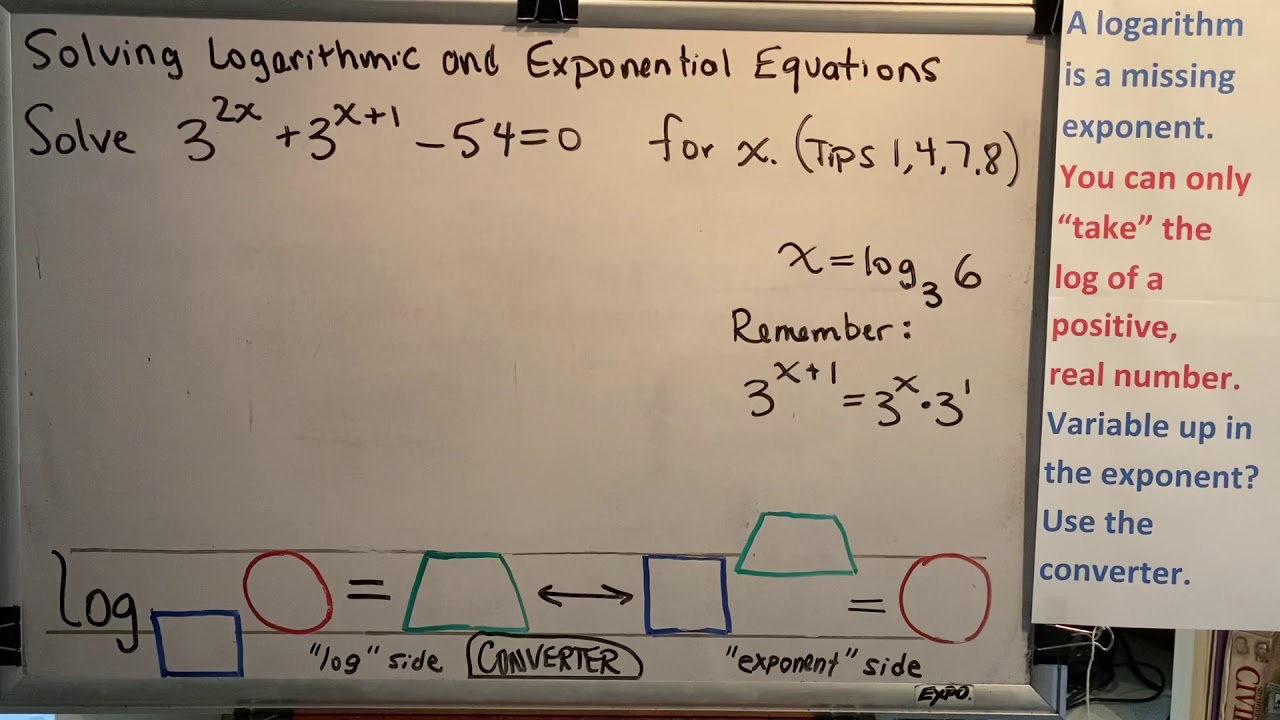 Solving Logarithmic and Exponential Equations
Solve 3^(2x) + 3^(x+1) - 54 = 0 for x. (Tips 1,4,7.8)
x = log_3 6
Remember:
3^(x+1) = 3^x · 3^1
log = ↔ =
"log" side CONVERTER "exponent" side
EXPO.
A logarithm
is a missing
exponent.
You can only
“take” the
log of a
positive,
real number.
Variable up in
the exponent?
Use the
converter.
CIVI